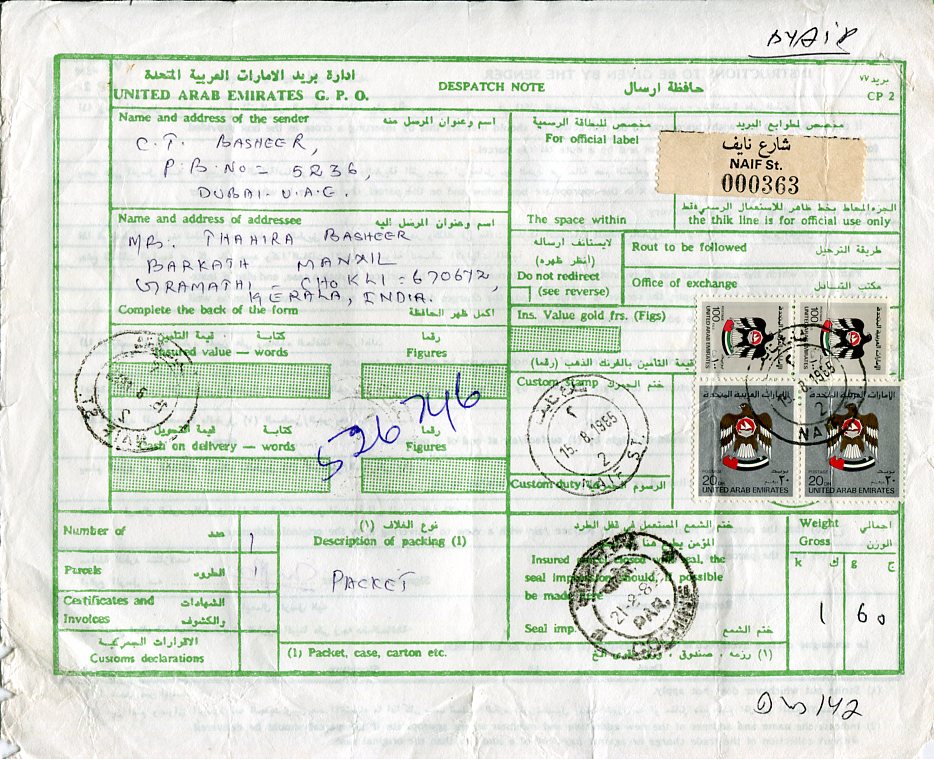 BYAIR
ادارة بريد الامارات العربية المتحدة
UNITED ARAB EMIRATES G. P. O.
DESPATCH NOTE
حافظة ارسال
بريد ٧٧
CP 2
Name and address of the sender
اسم وعنوان المرسل منه
C. T. BASHEER,
P. B. No = 5236,
DUBAI-U.A.E.
مخصص للبطاقة الرسمية
For official label
مخصص لطوابع البريد
شارع نايف
NAIF St.
000363
The space within
الجزء المحاط بخط ظاهر للاستعمال الرسمي فقط
the thik line is for official use only
Name and address of addressee
اسم وعنوان المرسل اليه
MR. THAHIRA BASHEER
BARKATH MANZIL
GRAMATHI = CHOKLI = 670672,
KERALA, INDIA.
Complete the back of the form
اكمل ظهر الحافظة
لايستانف ارساله
(أنظر ظهره)
Do not redirect
(see reverse)
Rout to be followed
طريقة الترحيل
Office of exchange
مكتب التبادل
Ins. Value gold frs. (Figs)
قيمة التأمين بالفرنك الذهب (رقما)
قيمة التأمين
كتابة
رقما
Insured value — words
Figures
52646
قيمة التحويل
كتابة
رقما
Cash on delivery — words
Figures
Custom stamp
ختم الجمرك
15.8.1985
2
NAIF ST.
Custom duty
الرسوم الجمركية
100
UNITED ARAB EMIRATES
100
UNITED ARAB EMIRATES
15.8.1985
2
NAIF
الإمارات العربية المتحدة
POSTAGE
20
٢٠
UNITED ARAB EMIRATES
الإمارات العربية المتحدة
POSTAGE
20
٢٠
UNITED ARAB EMIRATES
Number of
عدد
1
Parcels
الطرود
1
Certificates and
الشهادات
Invoices
والكشوف
الاقرارات الجمركية
Customs declarations
نوع الغلاف (١)
Description of packing (1)
PACKET
(1) Packet, case, carton etc.
(١) رزمه ، صندوق ،
ختم الشمع المستعمل في قفل الطرد
المؤمن
Insured
seal, the
seal impression should, if possible
be made
21-8-85
PAR.
Seal imp.
ختم الشمع
Weight
اجمالي
Gross
الوزن
k
ك
g
ج
1
60
142